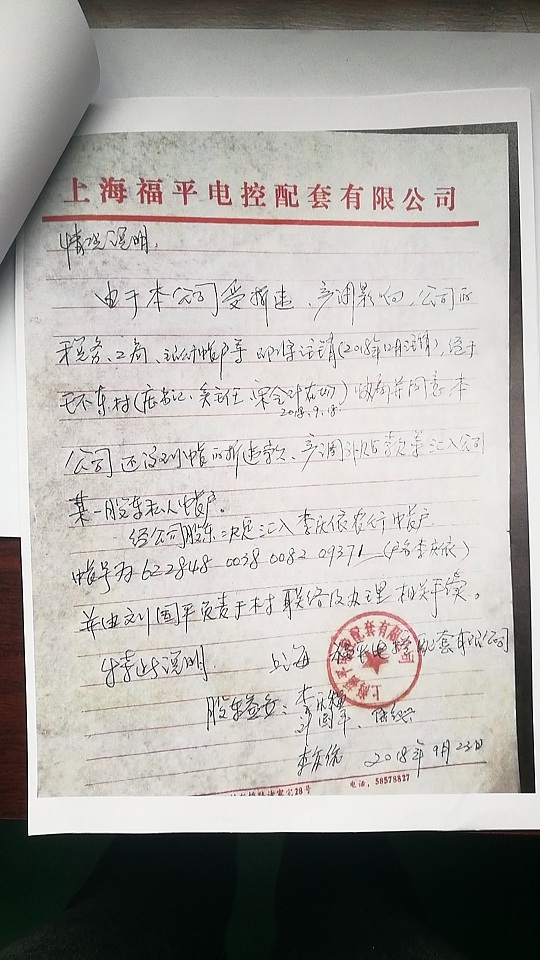 上海福平电控配套有限公司
情况说明.
由于本公司受拆违、产调影响,公司的
税务、工商、 等即将注销(2018年12月注销),经
村( 书记、 主任、 会计在场) 并同意本
2018.9.18
公司还没到帐的拆违款、产调补贴款等汇入公司
某一股东私人帐户。
经公司股东决定汇入李庆依农行帐户
帐号为622848 0038 0082 09371 (户名李庆依)
并由刘国平负责于村联络及办理相关手续。
特此说明 上海福平电控配套有限公司
股东签字: 李庆
国平、
李庆依 2018年9月23日
28号 电话:58578827